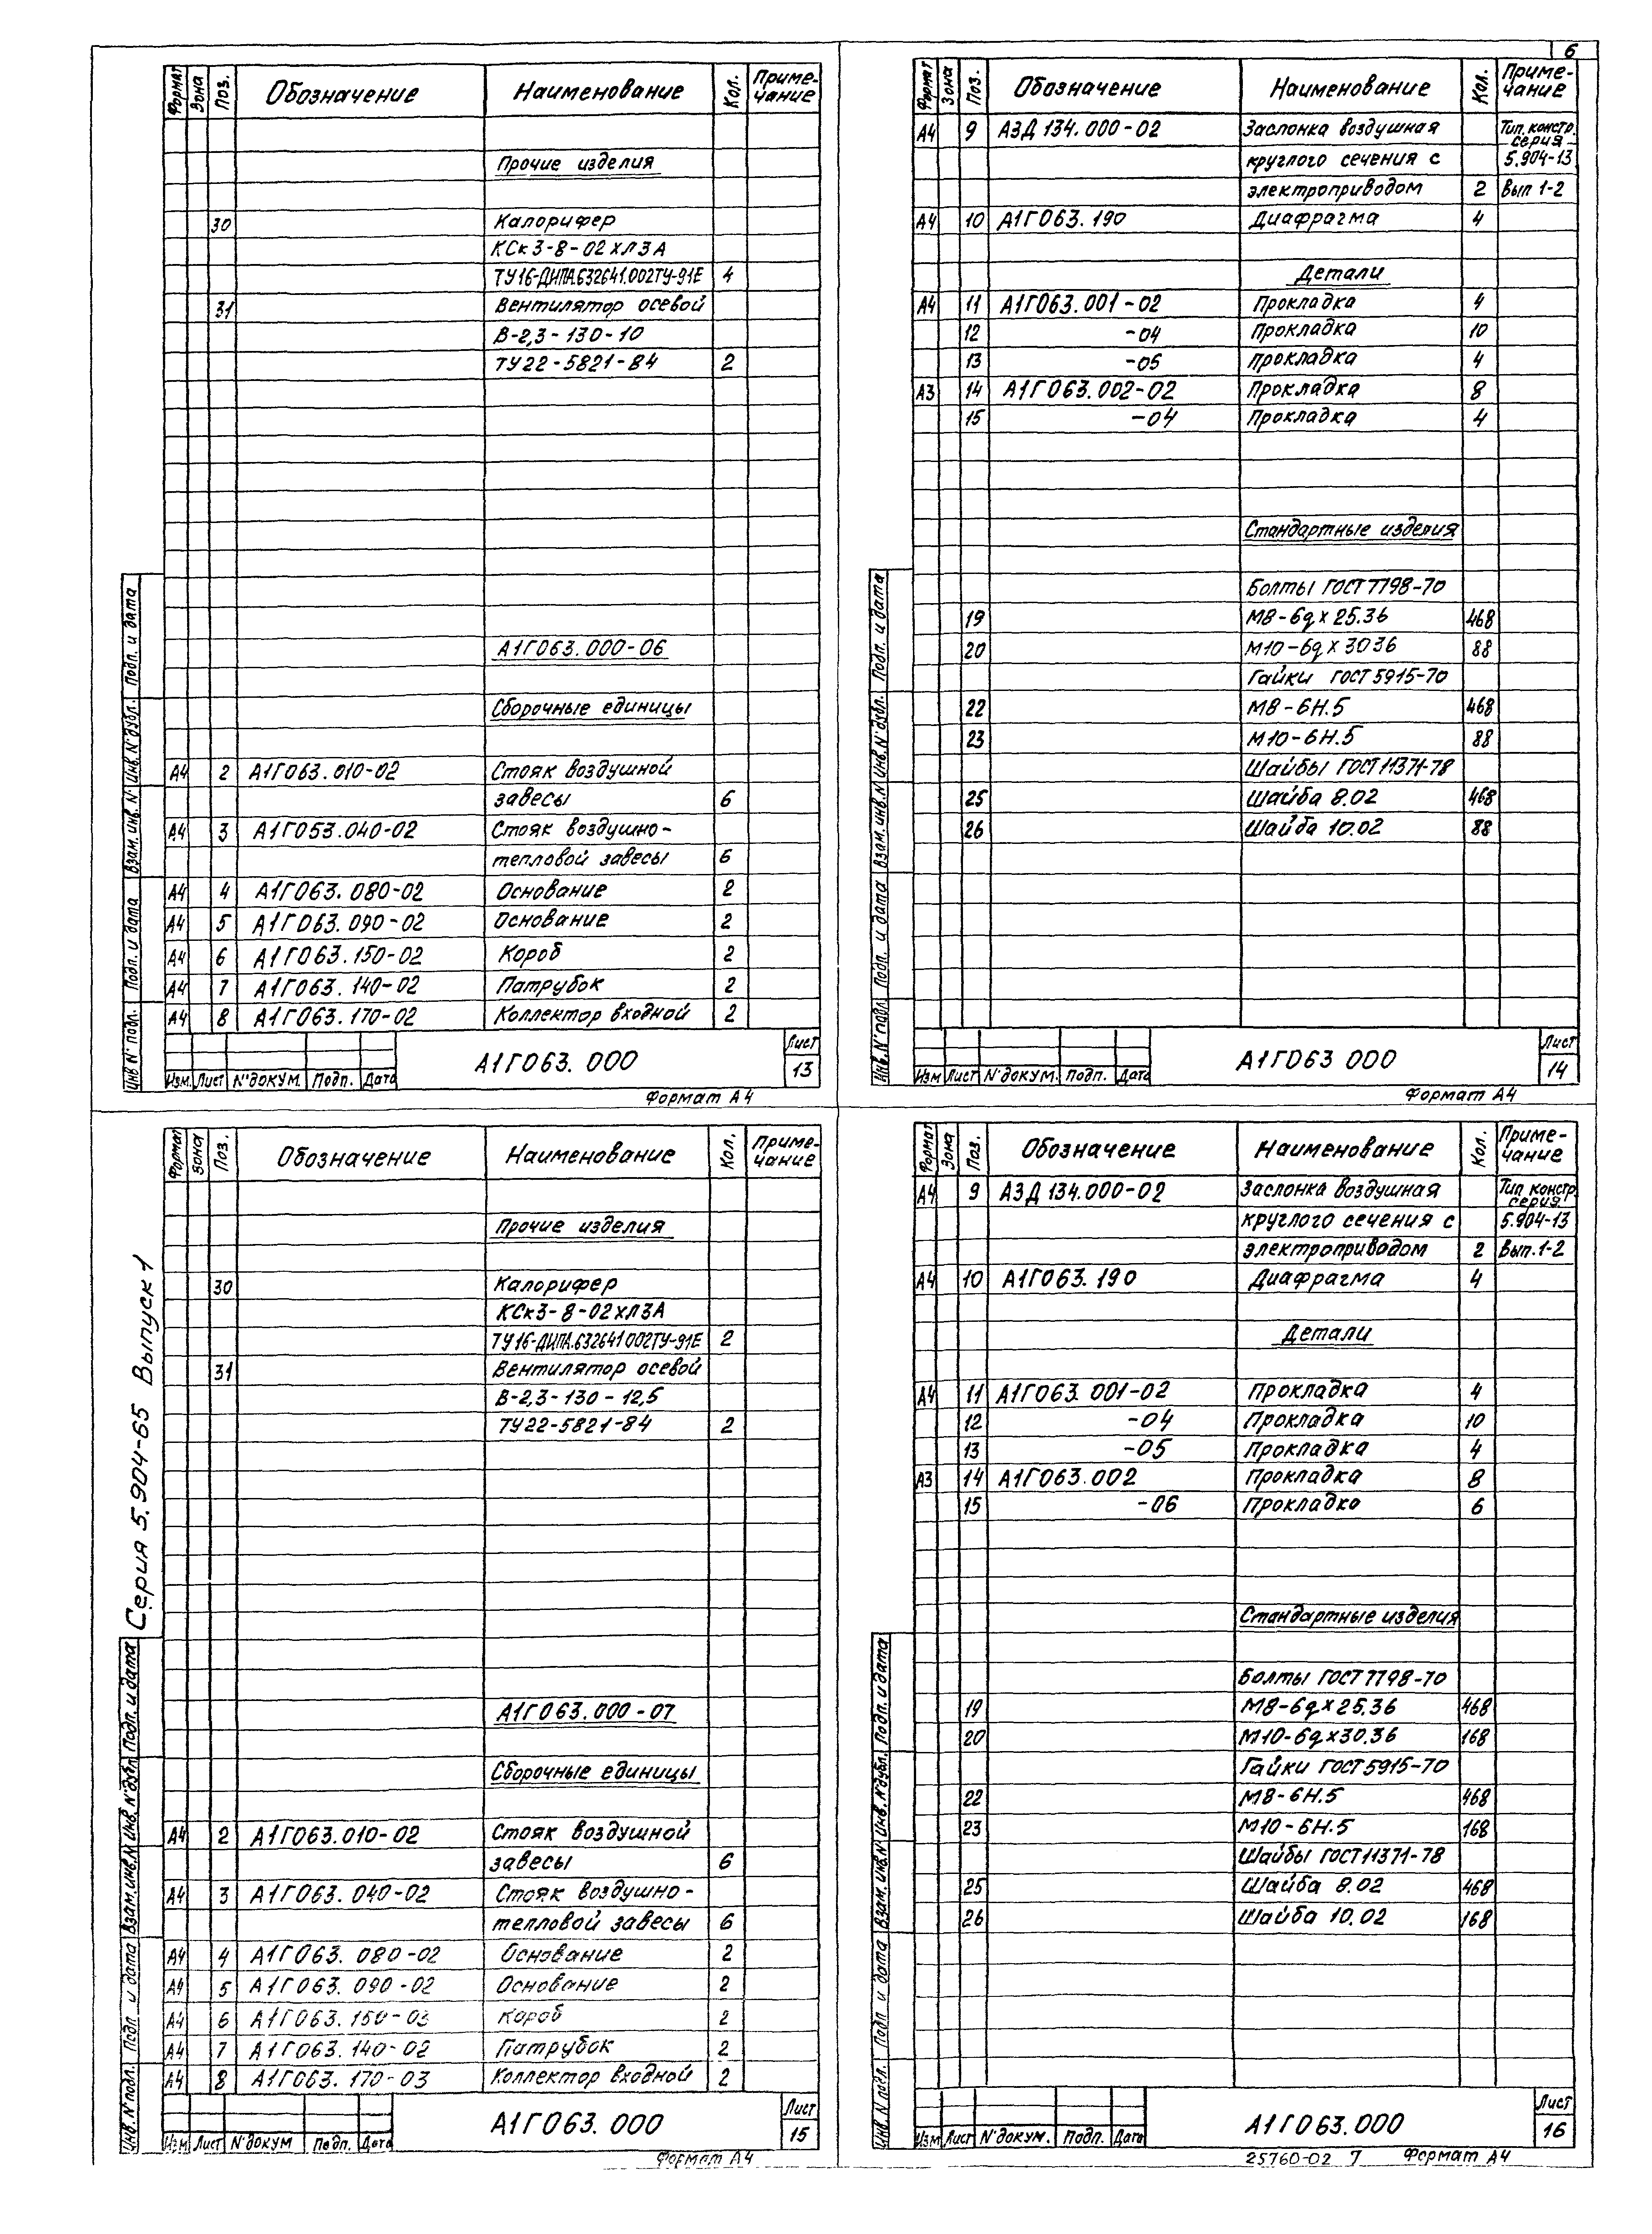 6
Формат Зона Поз. Обозначение Наименование Кол. Приме-
чание
Прочие изделия
30 Калорифер
КСк3-8-02ХЛ3А
ТУ16-ДИПА.632641.002ТУ-91Е 4
31 Вентилятор осевой
В-2,3-130-10
ТУ22-5821-84 2
А1Г063.000-06
Сборочные единицы
А4 2 А1Г063.010-02 Стояк воздушной
завесы 6
А4 3 А1Г053.040-02 Стояк воздушно-
тепловой завесы 6
А4 4 А1Г063.080-02 Основание 2
А4 5 А1Г063.090-02 Основание 2
А4 6 А1Г063.150-02 Короб 2
А4 7 А1Г063.140-02 Патрубок 2
А4 8 А1Г063.170-02 Коллектор входной 2
Инв.№подл. Подп. и дата Взам.инв.№ Инв.№дубл. Подп. и дата
Изм. Лист №докум. Подп. Дата
А1Г063.000
Лист
13
Формат А4
Формат Зона Поз. Обозначение Наименование Кол. Приме-
чание
А4 9 А3Д134.000-02 Заслонка воздушная Тип.констр.
серия
круглого сечения с 5.904-13
электроприводом 2 Вып 1-2
А4 10 А1Г063.190 Диафрагма 4
Детали
А4 11 А1Г063.001-02 Прокладка 4
12 -04 Прокладка 10
13 -05 Прокладка 4
А3 14 А1Г063.002-02 Прокладка 8
15 -04 Прокладка 4
Стандартные изделия
Болты ГОСТ7798-70
19 М8-6gх25.36 468
20 М10-6gх3036 88
Гайки ГОСТ5915-70
22 М8-6Н.5 468
23 М10-6Н.5 88
Шайбы ГОСТ11371-78
25 Шайба 8.02 468
26 Шайба 10.02 88
Инв.№подл. Подп. и дата Взам.инв.№ Инв.№дубл. Подп. и дата
Изм Лист №докум. Подп. Дата
А1Г063 000
Лист
14
Формат А4
Серия 5.904-65 Выпуск 1
Формат Зона Поз. Обозначение Наименование Кол. Приме-
чание
Прочие изделия
30 Калорифер
КСк3-8-02ХЛ3А
ТУ16-ДИПА.632641 002ТУ-91Е 2
31 Вентилятор осевой
В-2,3-130-12,5
ТУ22-5821-84 2
А1Г063.000-07
Сборочные единицы
А4 2 А1Г063.010-02 Стояк воздушной
завесы 6
А4 3 А1Г063.040-02 Стояк воздушно-
тепловой завесы 6
А4 4 А1Г063.080-02 Основание 2
А4 5 А1Г063.090-02 Основание 2
А4 6 А1Г063.150-03 Короб 2
А4 7 А1Г063.140-02 Патрубок 2
А4 8 А1Г063.170-03 Коллектор входной 2
Инв.№подл. Подп и дата Взам.инв.№ Инв.№дубл. Подп. и дата
Изм Лист №докум Подп. Дата
А1Г063.000
Лист
15
Формат А4
Формат Зона Поз. Обозначение Наименование Кол. Приме-
чание
А4 9 А3Д134.000-02 Заслонка воздушная Тип констр.
серия
круглого сечения с 5.904-13
электроприводом 2 Вып.1-2
А4 10 А1Г063.190 Диафрагма 4
Детали
А4 11 А1Г063.001-02 Прокладка 4
12 -04 Прокладка 10
13 -05 Прокладка 4
А3 14 А1Г063.002 Прокладка 8
15 -06 Прокладка 6
Стандартные изделия
Болты ГОСТ7798-70
19 М8-6gх25.36 468
20 М10-6gх30.36 168
Гайки ГОСТ5915-70
22 М8-6Н.5 468
23 М10-6Н.5 168
Шайбы ГОСТ11371-78
25 Шайба 8.02 468
26 Шайба 10.02 168
Инв.№подл. Подп и дата Взам.инв.№ Инв.№дубл. Подп. и дата
Изм Лист №докум. Подп. Дата
А1Г063.000
Лист
16
25760-02 7 Формат А4